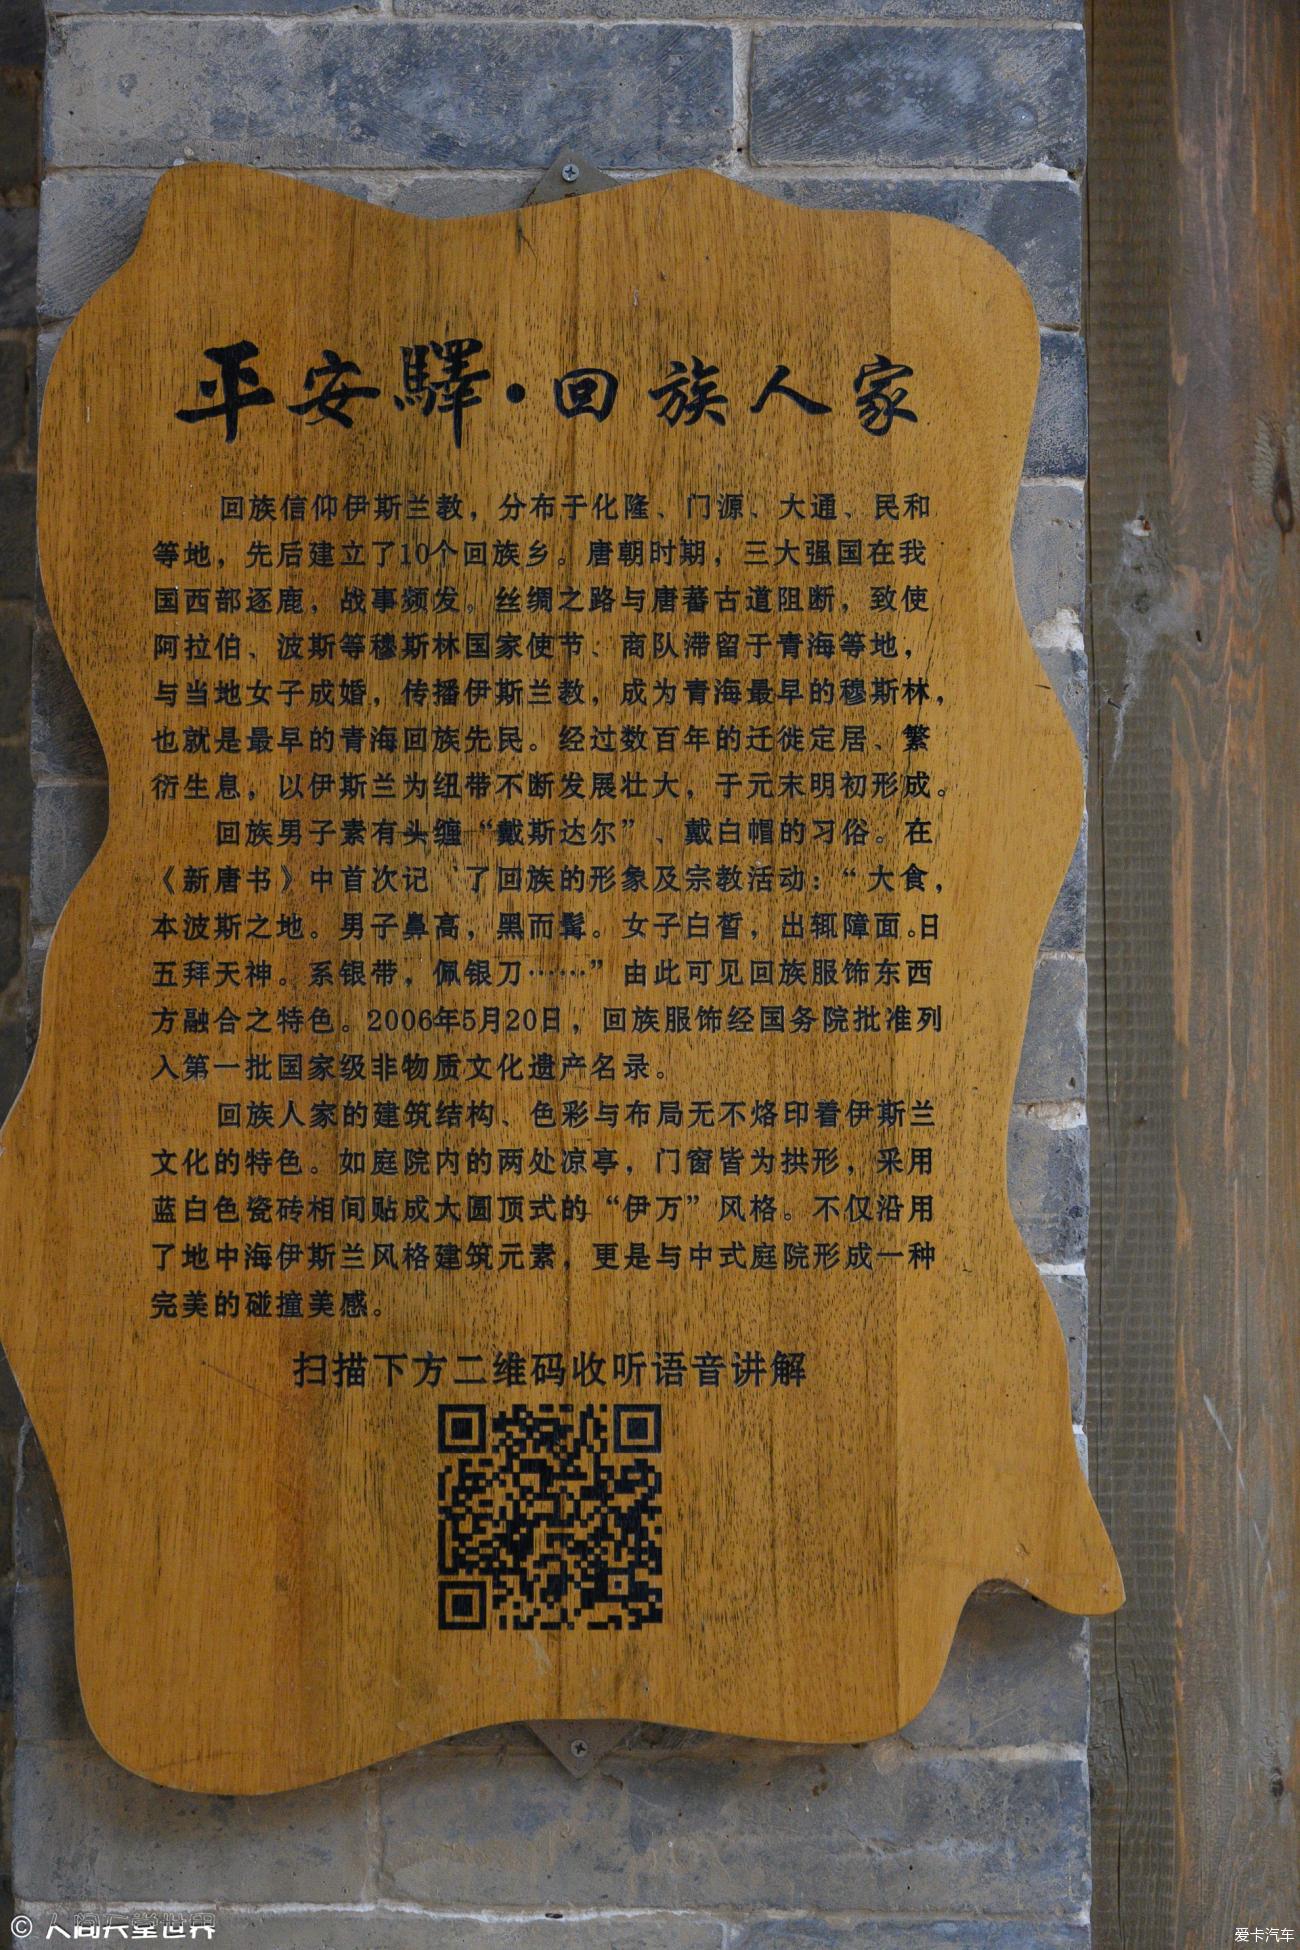 平安驛·回族人家
回族信仰伊斯兰教，分布于化隆、门源、大通、民和
等地，先后建立了10个回族乡。唐朝时期，三大强国在我
国西部逐鹿，战事频发。丝绸之路与唐蕃古道阻断，致使
阿拉伯、波斯等穆斯林国家使节、商队滞留于青海等地，
与当地女子成婚，传播伊斯兰教，成为青海最早的穆斯林，
也就是最早的青海回族先民。经过数百年的迁徙定居、繁
衍生息，以伊斯兰为纽带不断发展壮大，于元末明初形成。
回族男子素有头缠“戴斯达尔”、戴白帽的习俗。在
《新唐书》中首次记 了回族的形象及宗教活动：“大食，
本波斯之地。男子鼻高，黑而髯。女子白皙，出辄障面。日
五拜天神。系银带，佩银刀……”由此可见回族服饰东西
方融合之特色。2006年5月20日，回族服饰经国务院批准列
入第一批国家级非物质文化遗产名录。
回族人家的建筑结构、色彩与布局无不烙印着伊斯兰
文化的特色。如庭院内的两处凉亭，门窗皆为拱形，采用
蓝白色瓷砖相间贴成大圆顶式的“伊万”风格。不仅沿用
了地中海伊斯兰风格建筑元素，更是与中式庭院形成一种
完美的碰撞美感。
扫描下方二维码收听语音讲解
© 人间天堂世界
爱卡汽车